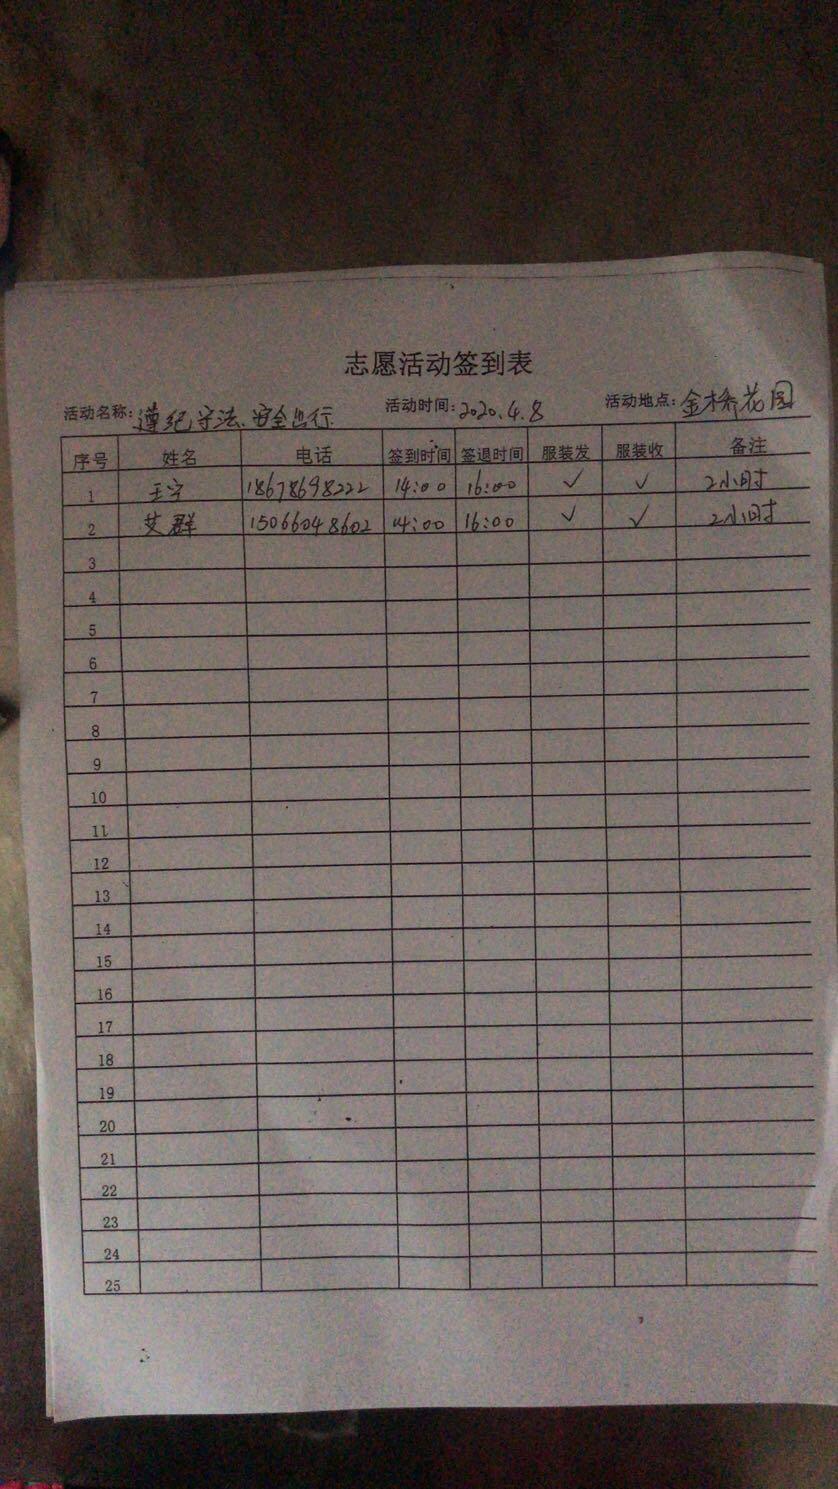 志愿活动签到表
活动名称：遵纪守法、安全出行 活动时间：2020.4.8 活动地点：金桥花园
序号 姓名 电话 签到时间 签退时间 服装发 服装收 备注
1 王宁 18678698222 14:00 16:00 ✓ ✓ 2小时
2 艾群 15066048602 14:00 16:00 ✓ ✓ 2小时
3
4
5
6
7
8
9
10
11
12
13
14
15
16
17
18
19
20
21
22
23
24
25